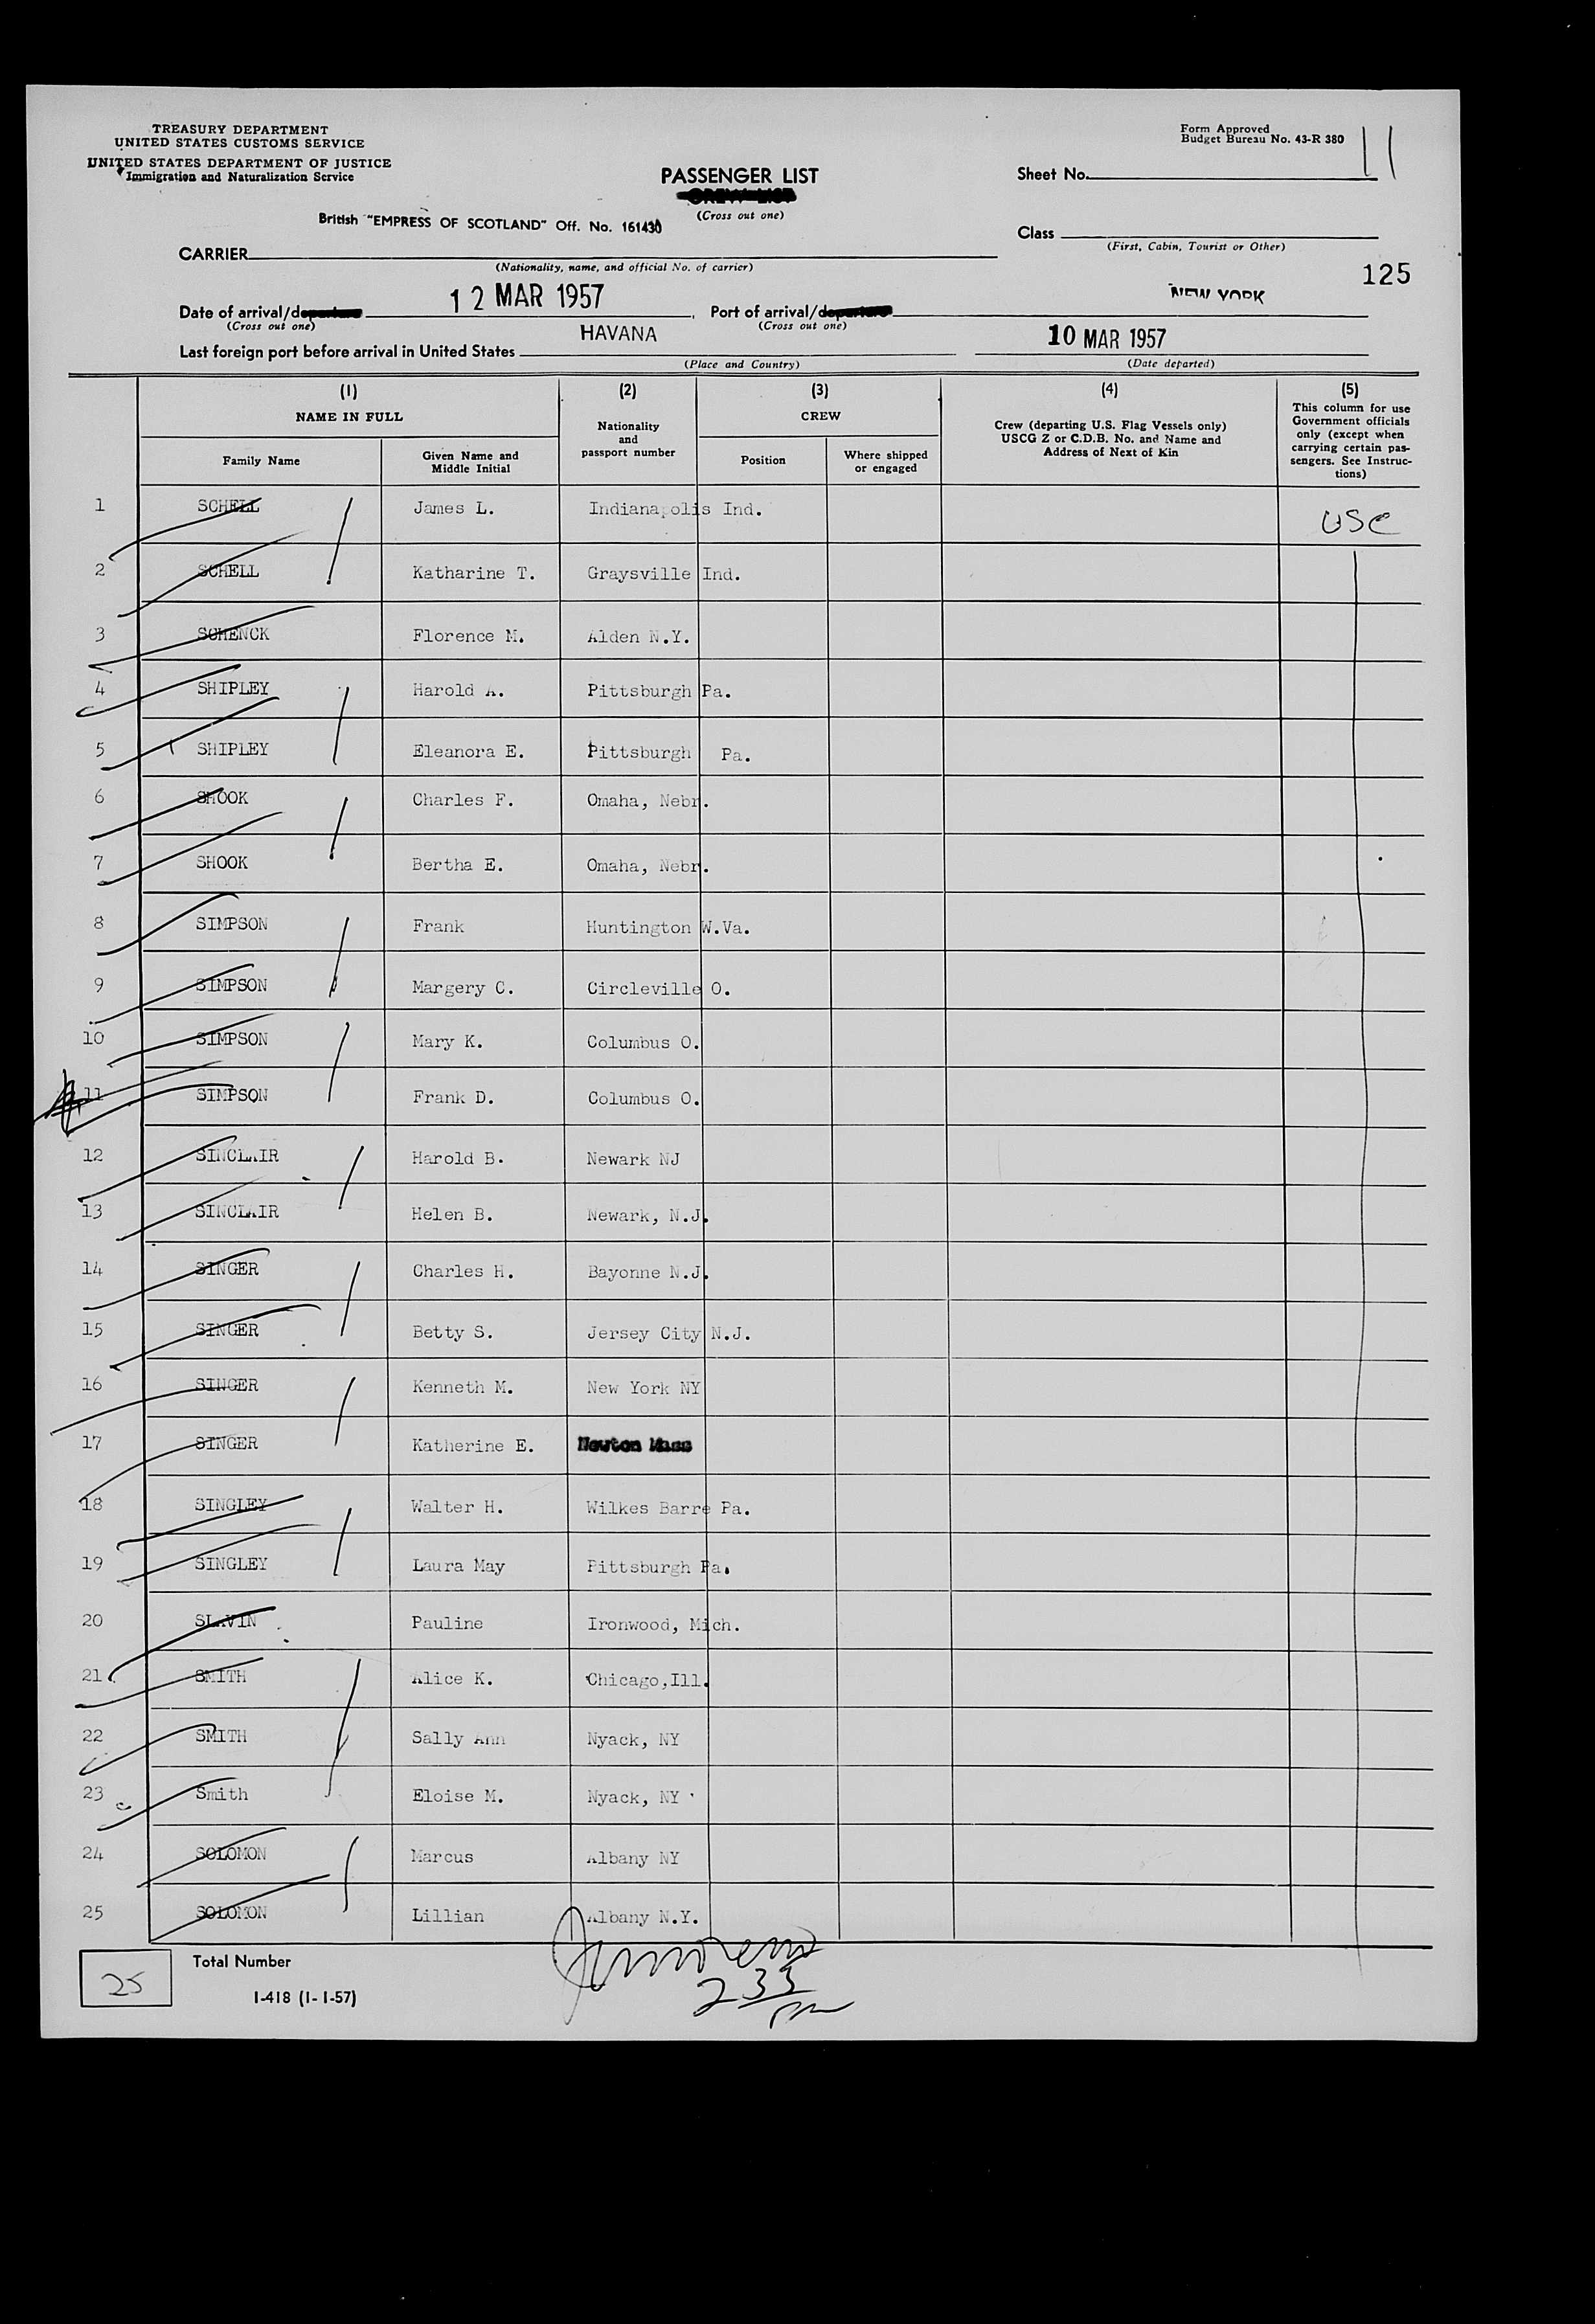 TREASURY DEPARTMENT
UNITED STATES CUSTOMS SERVICE
UNITED STATES DEPARTMENT OF JUSTICE
Immigration and Naturalization Service
Form Approved
Budget Bureau No. 43-R 380
PASSENGER LIST
CREW LIST
(Cross out one)
Sheet No. 11
British "EMPRESS OF SCOTLAND" Off. No. 161430
CARRIER
(Nationality, name, and official No. of carrier)
Class
(First, Cabin, Tourist or Other)
125
Date of arrival/departure 12 MAR 1957, Port of arrival/departure NEW YORK
(Cross out one) (Cross out one)
Last foreign port before arrival in United States HAVANA 10 MAR 1957
(Place and Country) (Date departed)
(1) (2) (3) (4) (5)
NAME IN FULL
Family Name
Given Name and Middle Initial
Nationality and passport number
CREW
Position
Where shipped or engaged
Crew (departing U.S. Flag Vessels only)
USCG Z or C.D.B. No. and Name and
Address of Next of Kin
This column for use
Government officials
only (except when
carrying certain pas-
sengers. See Instruc-
tions)
1 SCHELL James L. Indianapolis Ind. USC
2 SCHELL Katharine T. Graysville Ind.
3 SCHENCK Florence M. Alden N.Y.
4 SHIPLEY Harold A. Pittsburgh Pa.
5 SHIPLEY Eleanora E. Pittsburgh Pa.
6 SHOOK Charles F. Omaha, Nebr.
7 SHOOK Bertha E. Omaha, Nebr.
8 SIMPSON Frank Huntington W.Va.
9 SIMPSON Margery C. Circleville O.
10 SIMPSON Mary K. Columbus O.
11 SIMPSON Frank D. Columbus O.
12 SINCLAIR Harold B. Newark NJ
13 SINCLAIR Helen B. Newark, N.J.
14 SINGER Charles H. Bayonne N.J.
15 SINGER Betty S. Jersey City N.J.
16 SINGER Kenneth M. New York NY
17 SINGER Katherine E. Newton Mass
18 SINGLEY Walter H. Wilkes Barre Pa.
19 SINGLEY Laura May Pittsburgh Pa.
20 SLAVIN Pauline Ironwood, Mich.
21 SMITH Alice K. Chicago,Ill.
22 SMITH Sally Ann Nyack, NY
23 Smith Eloise M. Nyack, NY
24 SOLOMON Marcus Albany NY
25 SOLOMON Lillian Albany N.Y.
25 Total Number
I-418 (1-1-57)
2 33 pm